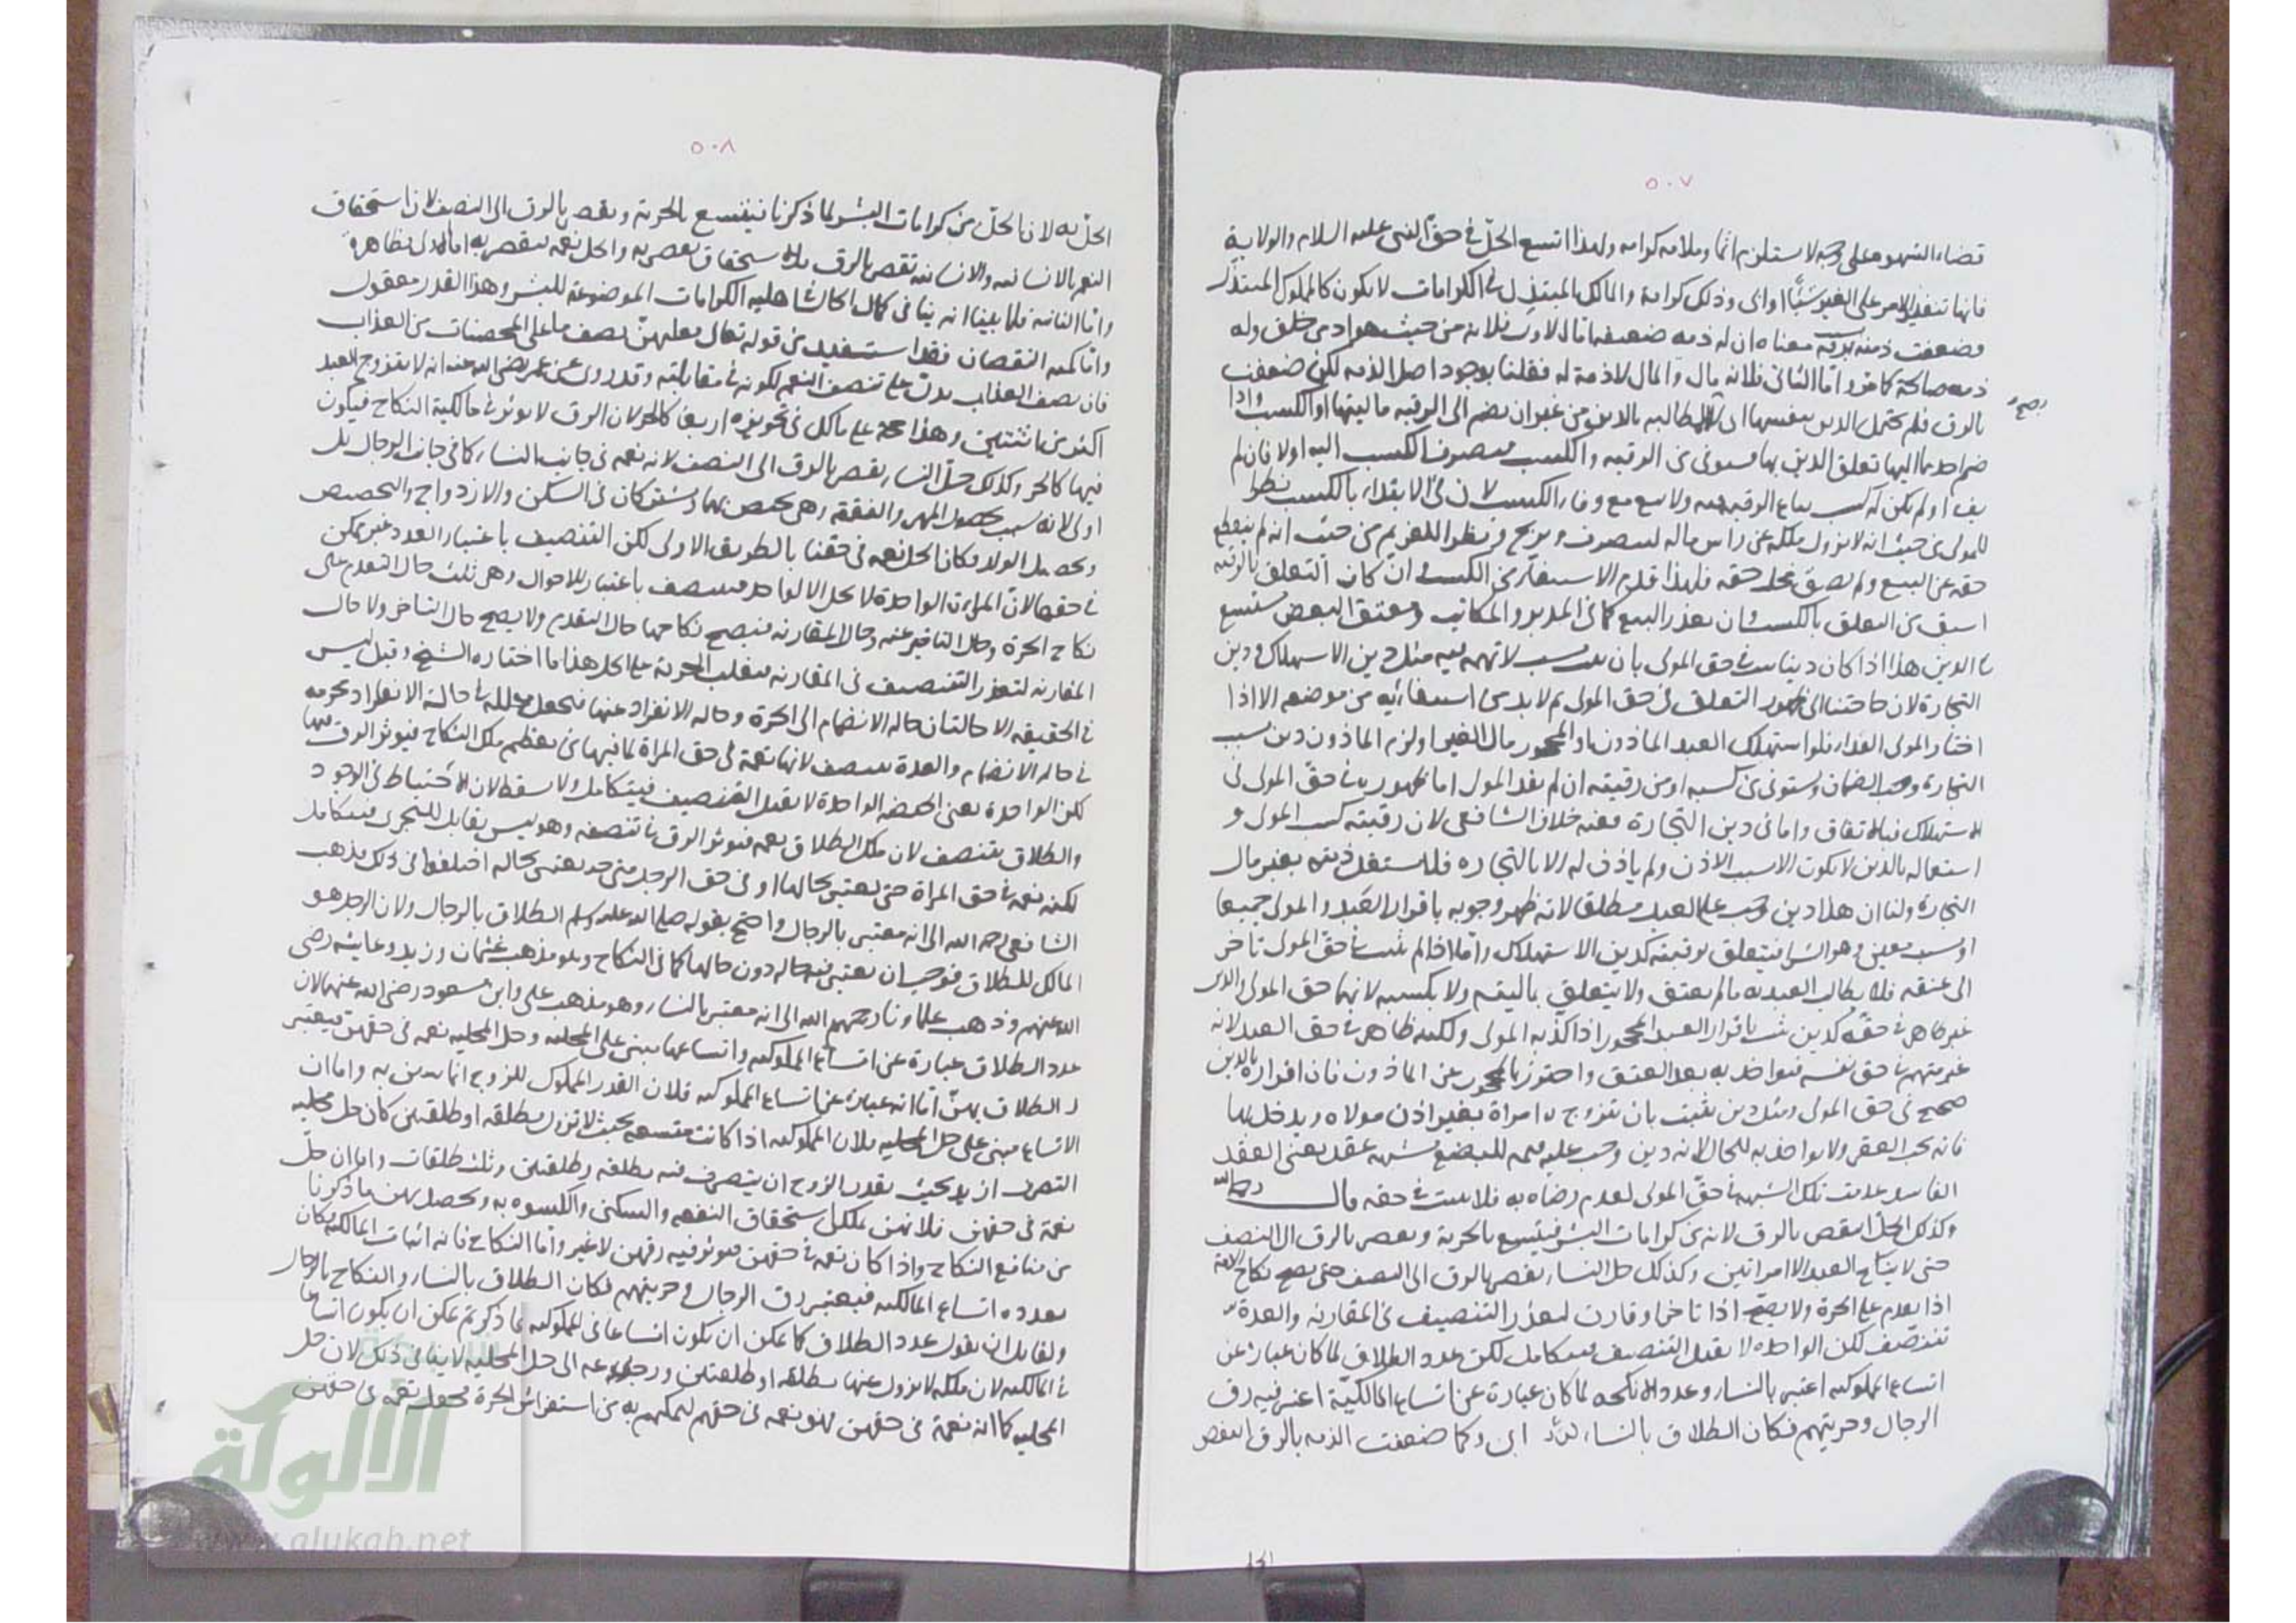 ٥٠٧
قضاء الشهوة على وجه لا يستلزم اثما وملامة كرامة ولهذا اتسع الحل في حق النبي عليه السلام والولاية
فانها تنفيذ الامر على الغير شيئا او ابى وذلك كرامة والمالك المبتذل في الكرامات لا يكون كالمملوك المبتذل
وضعفت ذمته برقه معناه ان له ذمة ضعيفة اما الاول فلانه من حيث هو ادمي خلق وله
ذمة صالحة كما مر واما الثاني فلانه مال والمال لا ذمة له فقلنا بوجود اصل الذمة لكن ضعفت
صح
بالرق فلم يحتمل الدين بنفسها اي المطالبة بالدين من غير ان يضم الى الرقبة ماليتها او الكسب واذا
ضم احدهما اليها تعلق الدين بها فيستوفى من الرقبة والكسب فيصرف الكسب اليه اولا فان لم
يف او لم يكن له كسب يباع الرقبة فيه ولا يبيع مع وفاء الكسب لان في الابتداء بالكسب نظرا
للمولى من حيث انه لا يزول ملكه عن راس ماله ليتصرف ويربح ونظرا للغريم من حيث انه لم ينقطع
حقه عن البيع ولم يضق محل حقه فلهذا قدم الاستيفاء من الكسب وان كان التعلق بالرقبة
اسبق من التعلق بالكسب وان تعذر البيع كما في المدبر والمكاتب ومعتق البعض يستسعى
في الدين هذا اذا كان دينا يثبت في حق المولى بان ثبت بسبب لا تهمة فيه مثل دين الاستهلاك ودين
التجارة لان حاجتنا الى ظهور التعلق في حق المولى ثم لا بد من استيفائه من موضعه الا اذا
اختار المولى الفداء فلو استهلك العبد الماذون او المحجور مال الغير او لزم الماذون دين بسبب
التجارة وجب الضمان ويستوفى من كسبه او من رقبته ان لم يفد المولى اما ظهوره في حق المولى في
الاستهلاك فبالاتفاق واما في دين التجارة ففيه خلاف الشافعي لان رقبته كسب المولى و
استعماله بالدين لا يكون الا بسبب الاذن ولم ياذن له الا بالتجارة فلا يشتغل ذمته بغير مال
التجارة ولنا ان هذا دين وجب على العبد مطلقا لانه ظهر وجوبه باقرار العبد والمولى جميعا
او بسبب معين وهو الشراء فيتعلق برقبته كدين الاستهلاك واما اذا لم يثبت في حق المولى تاخر
الى عتقه فلا يطالب العبد به ما لم يعتق ولا يتعلق بماليته ولا بكسبه لانهما حق المولى والدين
غير ظاهر في حقه كدين ثبت باقرار العبد المحجور اذا كذبه المولى ولكنه ظاهر في حق العبد لانه
غير متهم في حق نفسه فيؤاخذ به بعد العتق واحترز بالمحجور عن الماذون فان اقراره بالدين
صحيح في حق المولى ومثل دين يثبت بان تزوج امراة بغير اذن مولاه ويدخل بها
فانه يجب العقر ولا يؤاخذ به للحال لانه دين وجب عليه قيمة للبضع بشبهة عقد يعني العقد
الفاسد عدمت تلك الشبهة في حق المولى لعدم رضاه به فلا يثبت في حقه قال رحمه الله
وكذلك الحل انتقص بالرق لانه من كرامات البشر فيتسع بالحرية وينقص بالرق الى النصف
حتى لا ينكح العبد الا امراتين وكذلك حل النساء ينقص بالرق الى النصف حتى يصح نكاح الامة
اذا تقدم على الحرة ولا يصح اذا تاخر او قارن لتعذر التنصيف في المقارنة والعدة
تتنصف لكن الواحدة لا يقبل التنصيف فيتكامل لكن عدد الطلاق لما كان عبارة عن
اتساع المملوكية اعتبر بالنساء وعدد الانكحة لما كان عبارة عن اتساع المالكية اعتبر فيه رق
الرجال وحريتهم فكان الطلاق بالنساء اي وكما ضعفت الذمة بالرق انتقص
٥٠٨
الحل به لان الحل من كرامات البشر لما ذكرنا فيتسع بالحرية وينقص بالرق الى النصف لان استحقاق
النعم بالانسانية والانسانية تنقص بالرق فالاستحقاق ينقص به والحل نعمة فينقص به اما الاول فظاهر
واما الثانية فلما بينا انه ينافي كمال الحال في اهلية الكرامات الموضوعة للبشر وهذا القدر معقول
واما كمية النقصان فقد استفيد من قوله تعالى فعليهن نصف ما على المحصنات من العذاب
فان نصف العذاب يدل على تنصف النعم لكونه في مقابلته وقد روي عن عمر رضي الله عنه انه لا يتزوج العبد
اكثر من اثنتين وهذا حجة على مالك في تجويزه اربعا كالحر لان الرق لا يؤثر في مالكية النكاح فيكون
فيها كالحر وكذلك حل النساء ينقص بالرق الى النصف لانه نعمة في جانب النساء كما في جانب الرجال بل
اولى لانه سبب حصول المهر والنفقة وهي يختص بها ويشتركان في السكن والازدواج والتحصين
وتحصيل الولد فكان الحل نعمة في حقنا بالطريق الاولى لكن التنصيف باعتبار العدد غير ممكن
في حقها لان المراة الواحدة لا تحل الا لواحد فيتنصف باعتبار الاحوال وهي ثلث حال التقدم على
نكاح الحرة وحال التاخير عنه وحال المقارنة فيصح نكاحها حال التقدم ولا يصح حال التاخر ولا حال
المقارنة لتعذر التنصيف في المقارنة فيغلب الحرمة على الحل هذا ما اختاره الشيخ وقيل ليس
في الحقيقة الا حالتان حالة الانضمام الى الحرة وحالة الانفراد عنها فتجعل محللة في حالة الانفراد محرمة
في حالة الانضمام والعدة تتنصف لانها نعمة في حق المراة لما فيها من تعظيم ملك النكاح فيؤثر الرق فيها
لكن الواحدة يعني الحيضة الواحدة لا يقبل التنصيف فيتكامل ولا يسقط لان الاحتياط في الوجود
والطلاق يتنصف لان ملك الطلاق نعمة فيؤثر الرق في تنصفه وهو ليس بقابل للتجزي فيتكامل
لكنه نعمة في حق المراة حتى يعتبر بحالها او في حق الرجل حتى يعتبر بحاله اختلفوا في ذلك فذهب
الشافعي رحمه الله الى انه معتبر بالرجال واحتج بقوله صلى الله عليه وسلم الطلاق بالرجال ولان الرجل هو
المالك للطلاق فوجب ان يعتبر فيه حاله دون حالها كما في النكاح وهو مذهب عثمان وزيد وعايشة رضي
الله عنهم وذهب علماونا رحمهم الله الى انه معتبر بالنساء وهو مذهب علي وابن مسعود رضي الله عنهما لان
عدد الطلاق عبارة عن اتساع المملوكية واتساعها يبنى على المحلية وحل المحلية نعمة في حقهن فيعتبر
الطلاق بهن اما انه عبارة عن اتساع المملوكية فلان القدر المملوك للزوج انما يتبين به واما ان
الاتساع مبني على حل المحلية فلان المملوكية اذا كانت متسعة بحيث لا تزول بطلقة او طلقتين كان حل محلية
التصرف ازيد بحيث يقدر الزوج ان يتصرف فيه بطلقة وطلقتين وثلث طلقات واما ان حل
نعمة في حقهن فلانهن يملكن استحقاق النفقة والسكنى والكسوة به وتحصل بهن ما ذكرنا
من منافع النكاح واذا كان نعمة في حقهن فيؤثر فيه رقهن لا غير واما النكاح فانه اثبات المالكية فكان
بعدده اتساع المالكية فيعتبر رق الرجال وحريتهم فكان الطلاق بالنساء والنكاح بالرجال
ولقائل ان يقول عدد الطلاق كما يمكن ان يكون اتساعا في المملوكية لما ذكر ثم يمكن ان يكون اتساعا
في المالكية لان ملكه لا يزول عنها بطلقة او طلقتين ورجوعه الى حل المحلية لا ينافي ذلك لان حل
المحلية كما انه نعمة في حقهن فهو نعمة في حقهم لتمكنهم به من استفراش الحرة فجعله نعمة في حقهن
الألوكة
www.alukah.net